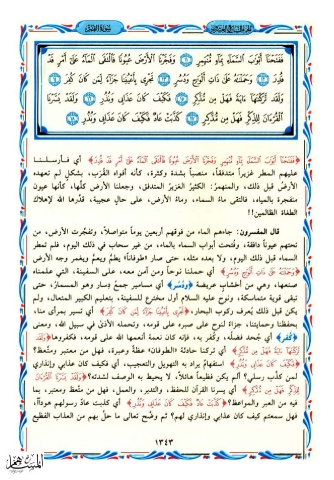 سورة القمر
فَفَتَحْنَا أَبْوَابَ السَّمَاءِ بِمَاءٍ مُنْهَمِرٍ ﴿١١﴾ وَفَجَّرْنَا الْأَرْضَ عُيُونًا فَالْتَقَى الْمَاءُ عَلَى أَمْرٍ قَدْ
قُدِرَ ﴿١٢﴾ وَحَمَلْنَاهُ عَلَى ذَاتِ أَلْوَاحٍ وَدُسُرٍ ﴿١٣﴾ تَجْرِي بِأَعْيُنِنَا جَزَاءً لِمَنْ كَانَ كُفِرَ ﴿١٤﴾
وَلَقَدْ تَرَكْنَاهَا آيَةً فَهَلْ مِنْ مُدَّكِرٍ ﴿١٥﴾ فَكَيْفَ كَانَ عَذَابِي وَنُذُرِ ﴿١٦﴾ وَلَقَدْ يَسَّرْنَا
الْقُرْآنَ لِلذِّكْرِ فَهَلْ مِنْ مُدَّكِرٍ ﴿١٧﴾ كَذَّبَتْ عَادٌ فَكَيْفَ كَانَ عَذَابِي وَنُذُرِ ﴿١٨﴾
﴿فَفَتَحْنَا أَبْوَابَ السَّمَاءِ بِمَاءٍ مُنْهَمِرٍ وَفَجَّرْنَا الْأَرْضَ عُيُونًا فَالْتَقَى الْمَاءُ عَلَى أَمْرٍ قَدْ قُدِرَ﴾ أي فأرسلنا
عليهم المطر غزيراً متدفقاً، منصباً بشدة وكثرة، كأنه أفواه القُرَب، بشكلٍ لم تعهده
الأرضُ قبل ذلك، والمنهمر: الكثيرُ الغزيرُ المتدفق، وجعلنا الأرض كلَّها، كأنها عيون
منفجرة بالمياه، فالتقى ماءُ السماء، وماءُ الأرض، على حالٍ عجيبة، قدَّرها الله لإهلاك
الطغاة الظالمين!!
قال المفسرون: جاءهم الماء من فوقهم أربعين يوماً متواصلاً، وتفجَّرت الأرض، من
تحتهم عيوناً دافقة، وفُتحت أبواب السماء بالماء، من غير سحاب في ذلك اليوم، فلم تمطر
السماء قبل ذلك اليوم، ولا بعده مثله، حتى صار «طوفاناً» يطمُّ ويعمُّ ويغمر وجه الأرض
﴿وَحَمَلْنَاهُ عَلَى ذَاتِ أَلْوَاحٍ وَدُسُرٍ﴾ أي حملنا نوحاً ومن آمن معه، على السفينة، التي علمناه
صنعها، وهي من أخشابٍ عريضة ﴿وَدُسُرٍ﴾ أي مسامير جمعُ دِسار وهو المسمار، حتى
تبقى قوية متماسكة، ونوح عليه السلام أول مخترع للسفينة، بتعليم الكبير المتعال، ولم
يكن قبل ذلك يُعرف ركوب البحار، ﴿تَجْرِي بِأَعْيُنِنَا جَزَاءً لِمَنْ كَانَ كُفِرَ﴾ أي تسير بمرأى منا،
بحفظنا وحمايتنا، جزاءً لنوحٍ على صبره على قومه، وتحمله الأذى في سبيل الله، ومعنى
﴿كُفِرَ﴾ أي جُحد فضلُه، وكُفر به، فإنه كان نعمة أنعمها الله على قومه، فكفروها ﴿وَلَقَدْ
تَرَكْنَاهَا آيَةً فَهَلْ مِنْ مُدَّكِرٍ﴾ أي تركنا حادثة «الطوفان» عظةً وعبرة، فهل من معتبر ومتَّعظ؟
﴿فَكَيْفَ كَانَ عَذَابِي وَنُذُرِ﴾ استفهامٌ يراد به التهويل والتعجيب، أي فكيف كان عذابي وإنذاري
لمن كذَّب رسلي؟ ألم يكن فظيعاً هائلاً، لا يحيط به الوصف لشدته؟ ﴿وَلَقَدْ يَسَّرْنَا الْقُرْآنَ
لِلذِّكْرِ فَهَلْ مِنْ مُدَّكِرٍ﴾ أي يسرنا القرآن للحفظ، والتدبر، والعمل، فهل من متَّعظٍ ومعتبر، بما
فيه من العبر والمواعظ؟ ﴿كَذَّبَتْ عَادٌ فَكَيْفَ كَانَ عَذَابِي وَنُذُرِ﴾ أي كذبت عادٌ رسولهم هوداً،
فهل سمعتم كيف كان عذابي وإنذاري لهم؟ ثم وضَّح تعالى ما حلَّ بهم من العذاب الفظيع
١٣٤٣